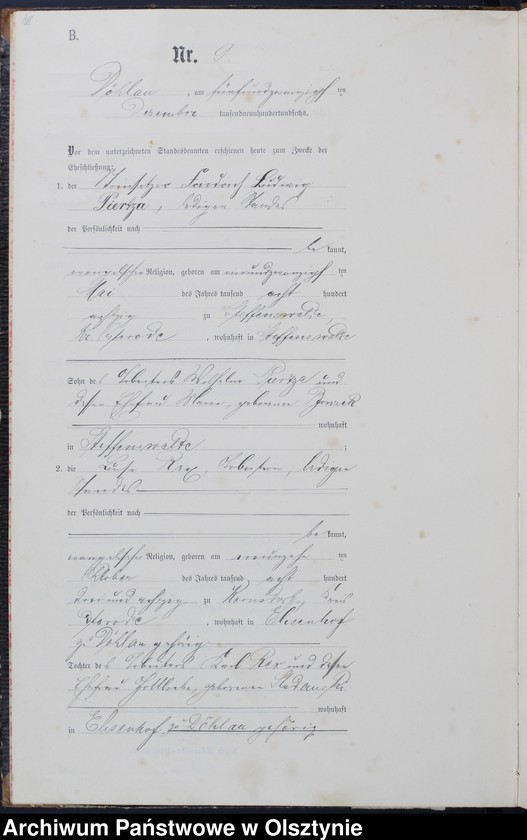 B.
Nr. 9.
Döhlau, am fünfundzwanzigsten
Dezember tausendneunhundertundsechs.
Vor dem unterzeichneten Standesbeamten erschienen heute zum Zwecke der
Eheschließung:
1. der Friedrich Ludwig
Piertza, ledigen Standes
der Persönlichkeit nach
be kannt,
evangelischer Religion, geboren am neunundzwanzigsten
Mai des Jahres tausend acht hundert
achtzig zu Steffenswalde,
Osterode, wohnhaft in Steffenswalde
Sohn des Arbeiters Wilhelm Piertza und
dessen Ehefrau Marie, geborenen
wohnhaft
in Steffenswalde;
2. die Luise Rex, Arbeiterin, ledigen
Standes
der Persönlichkeit nach
be kannt,
evangelischer Religion, geboren am neunzehn ten
Oktober des Jahres tausend acht hundert
dreiundachtzig zu Kernsdorf, Kreis
Osterode, wohnhaft in Elisenhof
zu Döhlau gehörig
Tochter des Arbeiters Karl Rex und dessen
Ehefrau Gottliebe, geborenen
wohnhaft
in Elisenhof zu Döhlau gehörig
Archiwum Państwowe w Olsztynie